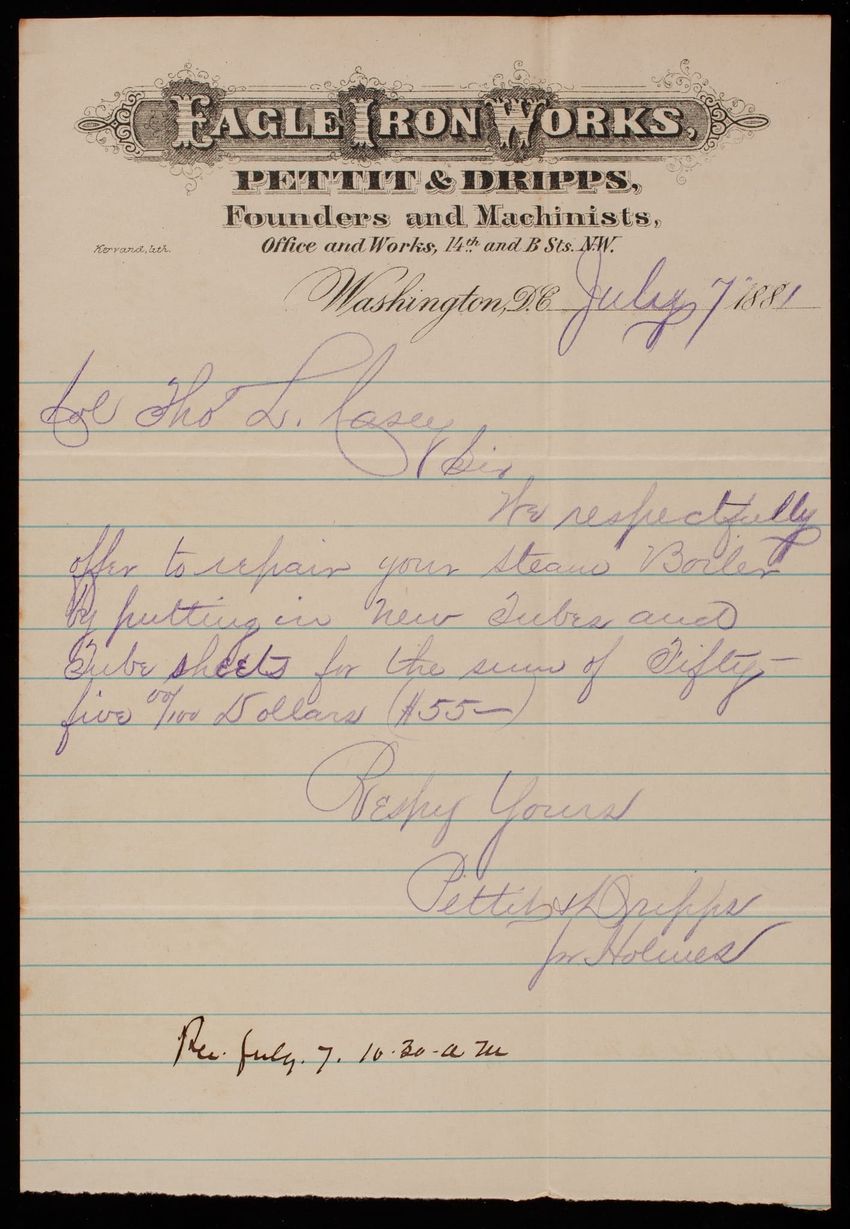 EAGLE IRON WORKS,
PETTIT & DRIPPS,
Founders and Machinists,
Office and Works, 14th and B Sts. N.W.
Kervand, lith.
Washington, D.C. July 7 1881
Col Thos L. Casey
Sir
We respectfully
offer to repair your steam Boiler
by putting in new Tubes and
Tube sheets for the sum of Fifty-
five 00/100 Dollars ($55—)
Respy Yours
Pettit & Dripps
pr Holmes
Rec. July. 7. 10-30-a m